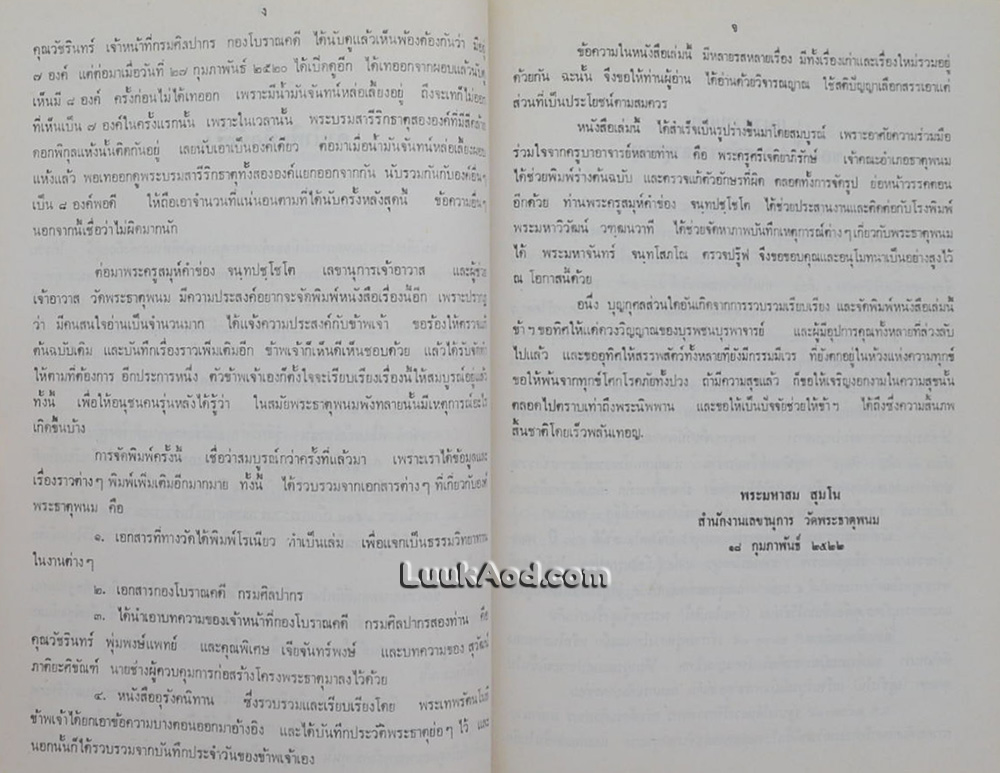 ง
คุณวัชรินทร์ เจ้าหน้าที่กรมศิลปากร กองโบราณคดี ได้นับดูแล้วเห็นพ้องต้องกันว่า มีอยู่
๗ องค์ แต่ต่อมาเมื่อวันที่ ๒๗ กุมภาพันธ์ ๒๕๒๐ ได้เปิดดูอีก ได้เทออกจากผอบแล้วนับดู
เห็นมี ๘ องค์ ครั้งก่อนไม่ได้เทออก เพราะมีน้ำมันจันทน์หล่อเลี้ยงอยู่ ถึงจะเทก็ไม่ออก
ที่เห็นเป็น ๗ องค์ในครั้งแรกนั้น เพราะในเวลานั้น พระบรมสารีริกธาตุสององค์ที่มีสีคล้าย
ดอกพิกุลแห้งนั้นติดกันอยู่ เลยนับเอาเป็นองค์เดียว ต่อมาเมื่อน้ำมันจันทน์หล่อเลี้ยงผอบ
แห้งแล้ว พอเทออกดูพระบรมสารีริกธาตุทั้งสององค์แยกออกจากกัน นับรวมกันกับองค์อื่นๆ
เป็น ๘ องค์พอดี ให้ถือเอาจำนวนที่แน่นอนตามที่ได้นับครั้งหลังสุดนี้ ข้อความอื่นๆ
นอกจากนี้เชื่อว่าไม่ผิดมากนัก
ต่อมาพระครูสมุห์คำช่อง จนฺทปชฺโชโต เลขานุการเจ้าอาวาส และผู้ช่วย
เจ้าอาวาส วัดพระธาตุพนม มีความประสงค์อยากจะจัดพิมพ์หนังสือเรื่องนี้อีก เพราะปรากฏ
ว่า มีคนสนใจอ่านเป็นจำนวนมาก ได้แจ้งความประสงค์กับข้าพเจ้า ขอร้องให้ตรวจแก้
ต้นฉบับเดิม และบันทึกเรื่องราวเพิ่มเติมอีก ข้าพเจ้าก็เห็นดีเห็นชอบด้วย แล้วได้รับจัดทำ
ให้ตามที่ต้องการ อีกประการหนึ่ง ตัวข้าพเจ้าเองก็ตั้งใจจะเรียบเรียงเรื่องนี้ให้สมบูรณ์อยู่แล้ว
ทั้งนี้ เพื่อให้อนุชนคนรุ่นหลังได้รู้ว่า ในสมัยพระธาตุพนมพังทลายนั้นมีเหตุการณ์อะไร
เกิดขึ้นบ้าง
การจัดพิมพ์ครั้งนี้ เชื่อว่าสมบูรณ์กว่าครั้งที่แล้วมา เพราะเราได้ข้อมูลและ
เรื่องราวต่างๆ พิมพ์เพิ่มเติมอีกมากมาย ทั้งนี้ ได้รวบรวมจากเอกสารต่างๆ ที่เกี่ยวกับองค์
พระธาตุพนม คือ
๑. เอกสารที่ทางวัดได้พิมพ์โรเนียว ทำเป็นเล่ม เพื่อแจกเป็นธรรมวิทยาทาน
ในงานต่างๆ
๒. เอกสารกองโบราณคดี กรมศิลปากร
๓. ได้นำเอาบทความของเจ้าหน้าที่กองโบราณคดี กรมศิลปากรสองท่าน คือ
คุณวัชรินทร์ พุ่มพงษ์แพทย์ และคุณพิเศษ เจียจันทร์พงษ์ และบทความของ สุวัฒน์
ภาติยะศิขัณฑ์ นายช่างผู้ควบคุมการก่อสร้างโครงพระธาตุมาลงไว้ด้วย
๔. หนังสืออุรังคนิทาน ซึ่งรวบรวมและเรียบเรียงโดย พระเทพรัตนโมลี
ข้าพเจ้าได้ยกเอาข้อความบางตอนออกมาอ้างอิง และได้บันทึกประวัติพระธาตุย่อๆ ไว้ และ
นอกนั้นก็ได้รวบรวมจากบันทึกประจำวันของข้าพเจ้าเอง
จ
ข้อความในหนังสือเล่มนี้ มีหลายรสหลายเรื่อง มีทั้งเรื่องเก่าและเรื่องใหม่รวมอยู่
ด้วยกัน ฉะนั้น จึงขอให้ท่านผู้อ่าน ได้อ่านด้วยวิจารณญาณ ใช้สติปัญญาเลือกสรรเอาแต่
ส่วนที่เป็นประโยชน์ตามสมควร
หนังสือเล่มนี้ ได้สำเร็จเป็นรูปร่างขึ้นมาโดยสมบูรณ์ เพราะอาศัยความร่วมมือ
ร่วมใจจากครูบาอาจารย์หลายท่าน คือ พระครูศรีเจติยาภิรักษ์ เจ้าคณะอำเภอธาตุพนม
ได้ช่วยพิมพ์ร่างต้นฉบับ และตรวจแก้ตัวอักษรที่ผิด ตลอดทั้งการจัดรูป ย่อหน้าวรรคตอน
อีกด้วย ท่านพระครูสมุห์คำช่อง จนฺทปชฺโชโต ได้ช่วยประสานงานและติดต่อกับโรงพิมพ์
พระมหาวิวัฒน์ วฑฺฒนวาที ได้ช่วยจัดหาภาพบันทึกเหตุการณ์ต่างๆ เกี่ยวกับพระธาตุพนม
ได้ พระมหาจันทร์ จนฺทโสภโณ ตรวจปรู๊ฟ จึงขอขอบคุณและอนุโมทนาเป็นอย่างสูงไว้
ณ โอกาสนี้ด้วย
อนึ่ง บุญกุศลส่วนใดอันเกิดจากการรวบรวมเรียบเรียง และจัดพิมพ์หนังสือเล่มนี้
ข้าฯ ขอทิศให้แด่ดวงวิญญาณของบุรพชนบุรพาจารย์ และผู้มีอุปการคุณทั้งหลายที่ล่วงลับ
ไปแล้ว และขออุทิศให้สรรพสัตว์ทั้งหลายที่ยังมีกรรมมีเวร ที่ยังตกอยู่ในห้วงแห่งความทุกข์
ขอให้พ้นจากทุกข์โศกโรคภัยทั้งปวง ถ้ามีความสุขแล้ว ก็ขอให้เจริญงอกงามในความสุขนั้น
ตลอดไปตราบเท่าถึงพระนิพพาน และขอให้เป็นปัจจัยช่วยให้ข้าฯ ได้ถึงซึ่งความสิ้นภพ
สิ้นชาติโดยเร็วพลันเทอญ.
พระมหาสม สุมโน
สำนักงานเลขานุการ วัดพระธาตุพนม
๑๘ กุมภาพันธ์ ๒๕๒๒
LuukAod.com